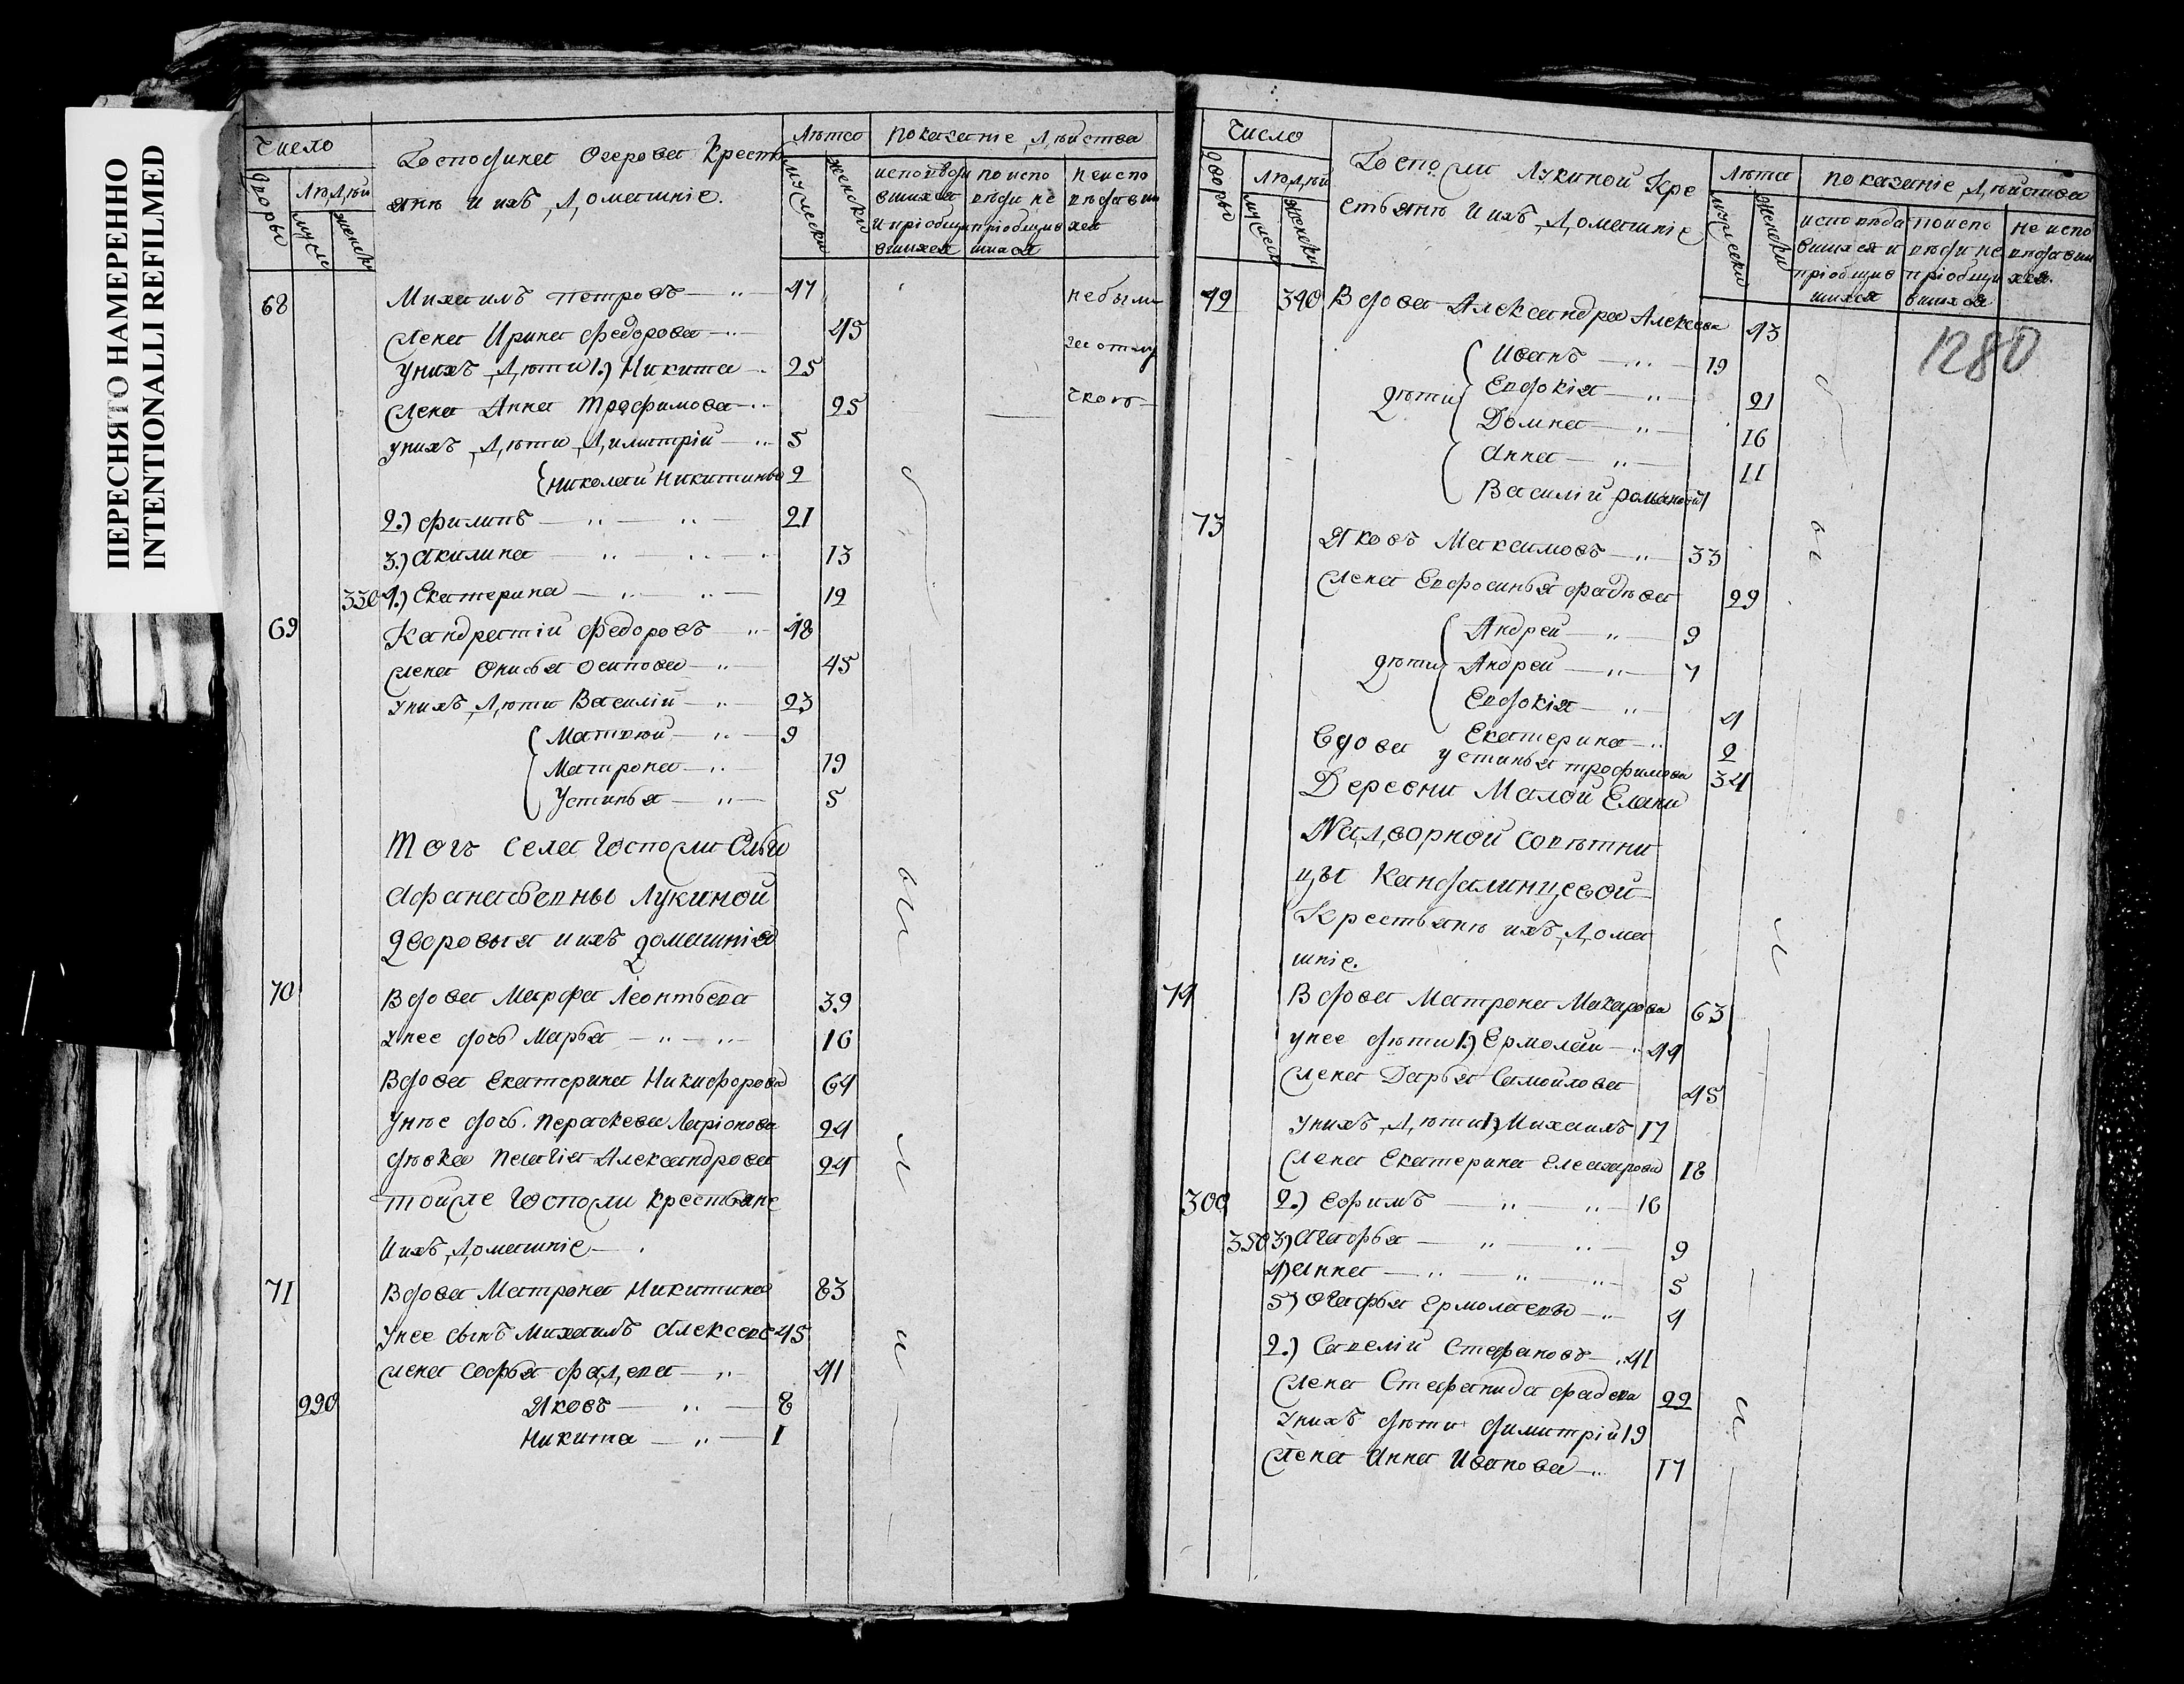 ПЕРЕСНЯТО НАМЕРЕННО
INTENTIONALLI REFILMED
Число
Господина Озерова Крестья
янѣ и ихъ Домашніе.
Лѣта
показаніе Дѣйства
Дворы
Людей
мужск
женск
мужески
женски
исповѣда
вшихся
и пріобщи
вшихся
по испо
вѣди не
пріобщив
шихся
неиспо
вѣдавши
хся
68 Михаилъ петровъ 47 небыли
Жена Ирина Федорова 45
за отлу
Унихъ Дѣти 1.) Никита 25
Жена Анна Трофимова 25 чкою
унихъ Дѣти Димитрій 5
Николай Никитины 2
2.) филипъ 21
3.) Акилина 13
330 4.) Екатерина 12
69 Кандратій Федоровъ 48
Жена Онисья Осипова 45
унихъ Дѣти Василій 23
Матвѣй 9
Матрона 19
Устинья 5
Тогъ села Госпожи Ольги
Афанасьевны Лукиной
Дворовыя и ихъ домашнія
70 Вдова Марфа Леонтьева 39
унее дочь Марья 16
Вдова Екатерина Никифорова 64
Унѣе дочь Параскева Ларіонова 24
дѣвка Пелагія Александрова 24
тойже Госпожи Крестьяне
И ихъ Домашніе
71 Вдова Матрона Никитина 83
Унее сынъ Михаилъ Алексеевъ 45
жена Софья фадеева 41
290 Яковъ 8
Никита 1
Число
Госпожи Лукиной Кре
стьянѣ и ихъ Домашніе
Лѣта
показаніе Дѣйства
Дворы
Людей
мужеск
женски
мужески
женски
исповѣда
вшихся и
пріобщив
шихся
поиспо
вѣди не
пріобщи
вшихся
не испо
вѣдавши
хся.
1280
72 340 Вдова Александра Алексева 43
Иванъ 19
дѣти Евдокія 21
Домна 16
Анна 11
Василій
73 Яковъ Максимовъ 33
Жена Евфросинья фадѣева 29
Андрей 9
дѣти Андрей 7
Евдокія 4
Екатерина 2
вдова устинья трофимова 34
Деревни Малой Елани
Надворной Совѣтни
цы Кандалинцевой
Крестьянѣ ихъ Дома
шніе.
74 Вдова Матрона Макарова 63
унее дѣти 1.) Ермолай 44
Жена Дарья Самойлова 45
Унихъ Дѣти 1) Михаилъ 17
Жена Екатерина Елеазарова 18
300 2.) Ефимъ 16
350 3) Агафья 9
4) Анна 5
5) Огафья Ермолаевы 4
2.) Савелій Стефановъ 41
Жена Стефанида фадева 22
Унихъ дѣти Димитрій 19
Жена Анна Иванова 17